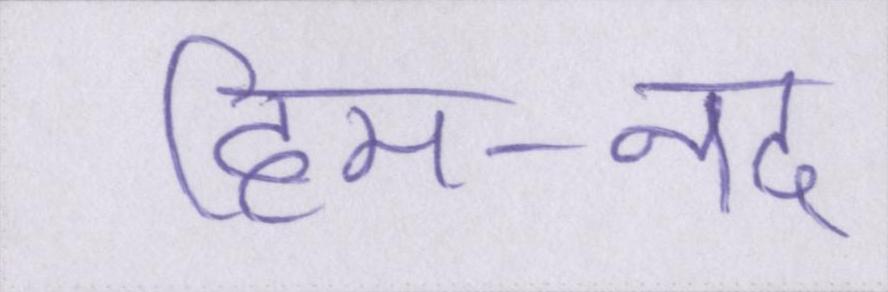 हिम-नद